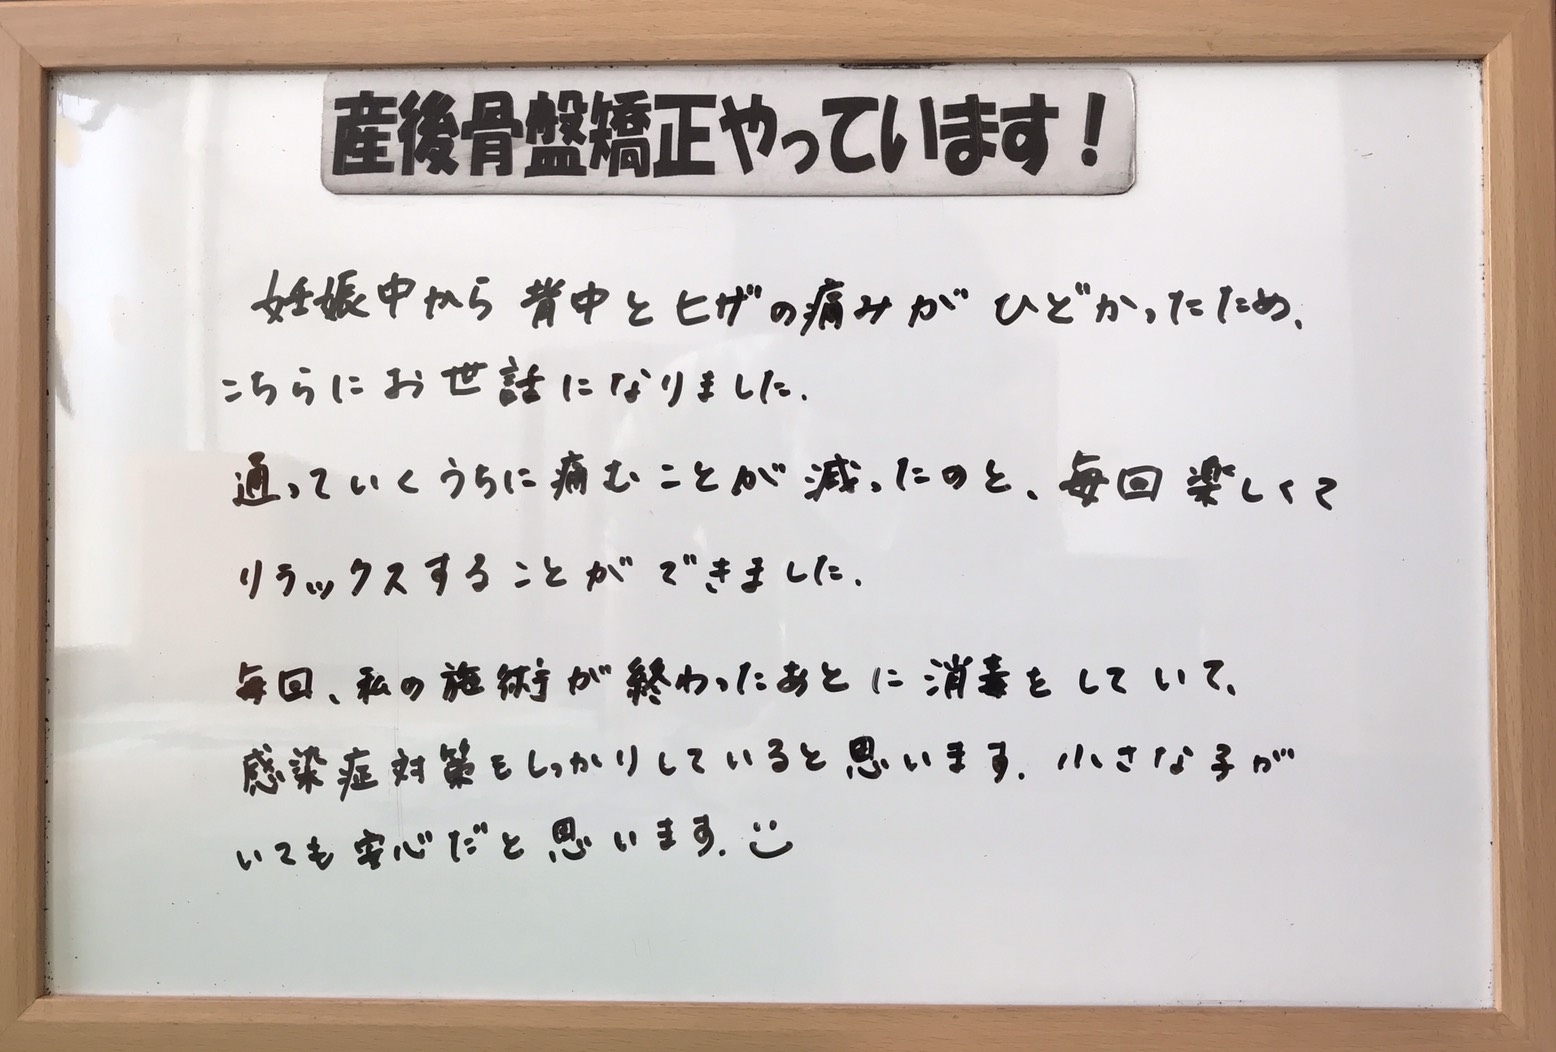 産後骨盤矯正やっています！
妊娠中から背中とヒザの痛みがひどかったため、
こちらにお世話になりました。
通っていくうちに痛むことが減ったのと、毎回楽しくて
リラックスすることができました。
毎回、私の施術が終わったあとに消毒をしていて、
感染症対策もしっかりしていると思います。小さな子が
いても安心だと思います。